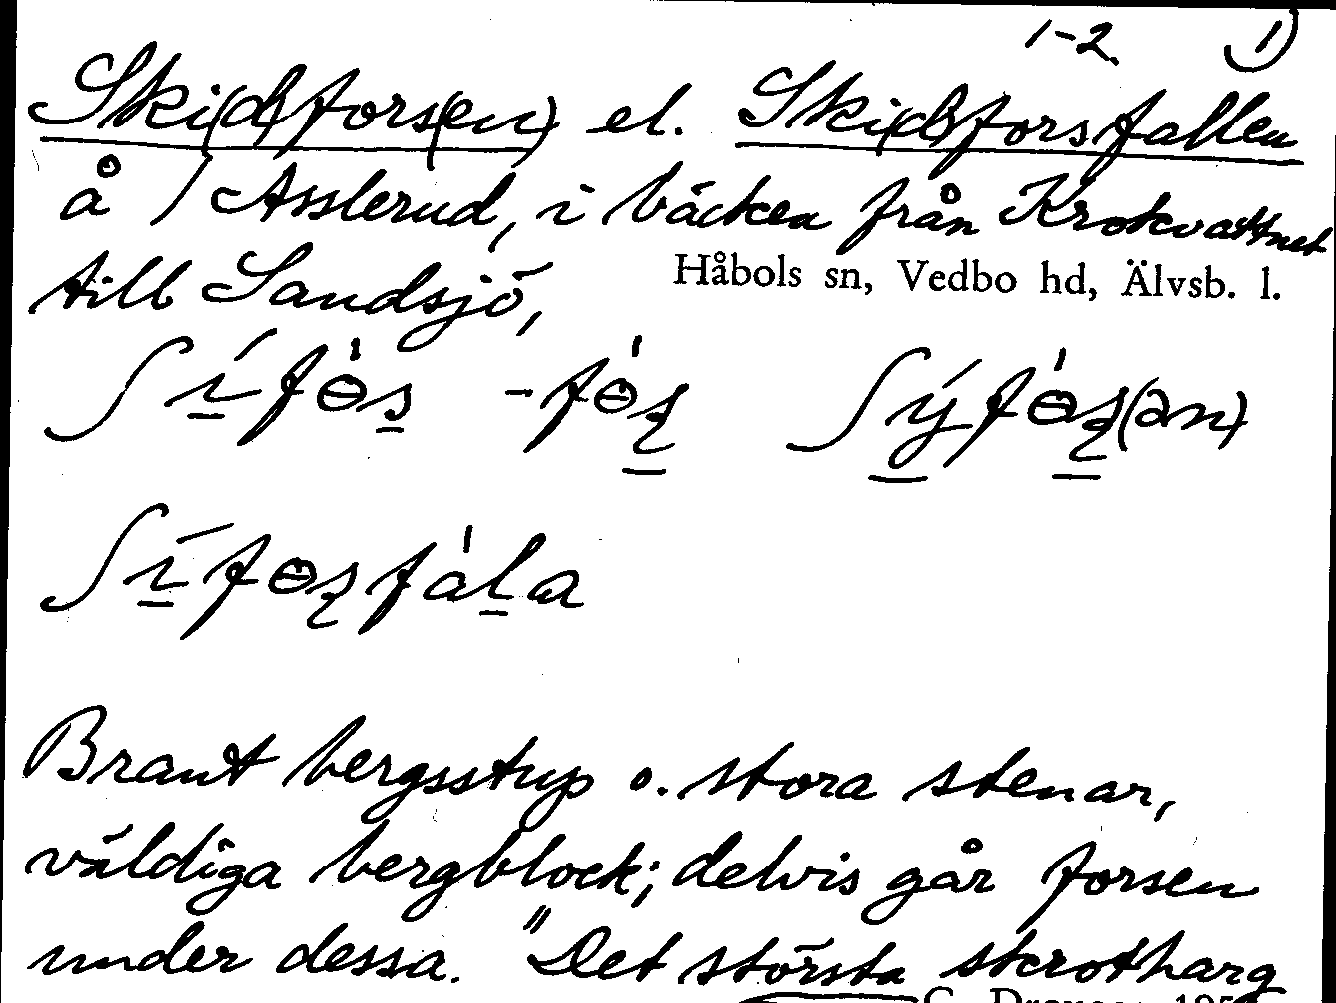 1-2. 1)
Ski(d)fors(en) el. Ski(d)forsfallen
å / Asslerud, i bäcken från Krokvattnet
till Sandsjö,
Håbols sn, Vedbo hd, Älvsb. l.
Brant bergsstup o. stora stenar,
väldiga bergblock; delvis går forsen
under dessa. "Det största skrotbarg